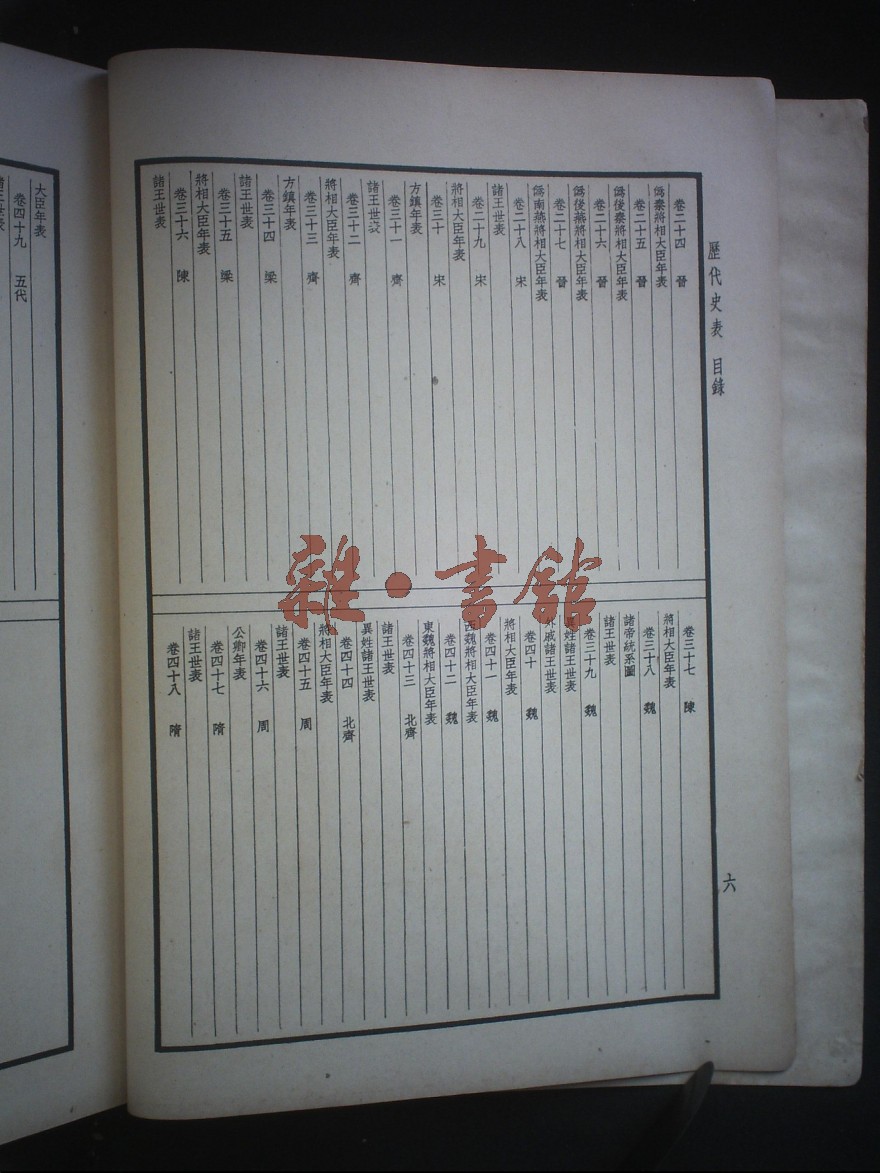 歷代史表 目錄
六
卷二十四 晉
僞秦將相大臣年表
卷二十五 晉
僞後秦將相大臣年表
卷二十六 晉
僞後燕將相大臣年表
卷二十七 晉
僞南燕將相大臣年表
卷二十八 宋
諸王世表
卷二十九 宋
將相大臣年表
卷三十 宋
方鎮年表
卷三十一 齊
諸王世表
卷三十二 齊
將相大臣年表
卷三十三 齊
方鎮年表
卷三十四 梁
諸王世表
卷三十五 梁
將相大臣年表
卷三十六 陳
諸王世表
卷三十七 陳
將相大臣年表
卷三十八 魏
諸帝統系圖
諸王世表
卷三十九 魏
異姓諸王世表
外戚諸王世表
卷四十 魏
將相大臣年表
卷四十一 魏
西魏將相大臣年表
卷四十二 魏
東魏將相大臣年表
卷四十三 北齊
諸王世表
異姓諸王世表
卷四十四 北齊
將相大臣年表
卷四十五 周
諸王世表
卷四十六 周
公卿年表
卷四十七 隋
諸王世表
卷四十八 隋
大臣年表
卷四十九 五代
諸王世表
雜·書館